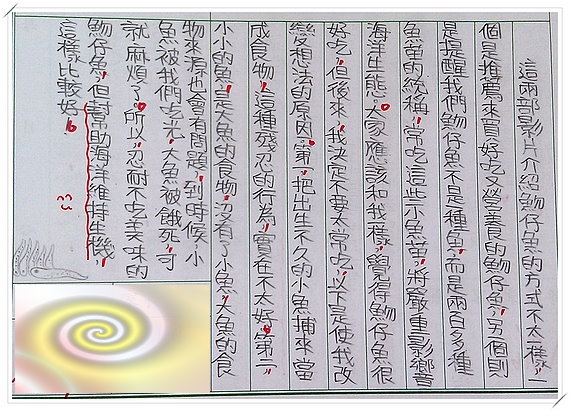 這兩部影片介紹魩仔魚的方式不太一樣,一
個是推薦來買好吃又營養的魩仔魚,另一個則
是提醒我們魩仔魚不是一種魚,而是兩百多種
魚苗的統稱,常吃這些小魚苗,將嚴重影響
海洋生態。大家應該和我一樣,覺得魩仔魚很
好吃,但後來,我決定不要太常吃,以下是使我改
變想法的原因:第一,把出生不久的小魚捕來當
成食物,這種殘忍的行為,實在不太好。第二,
小小的魚,是大魚的食物,沒有了小魚,大魚的食
物來源也會有問題,到時候,小
魚被我們吃光,大魚被餓死,可
就麻煩了。所以,忍耐不吃美味的
魩仔魚,但幫助海洋維持生機,
這樣比較好。